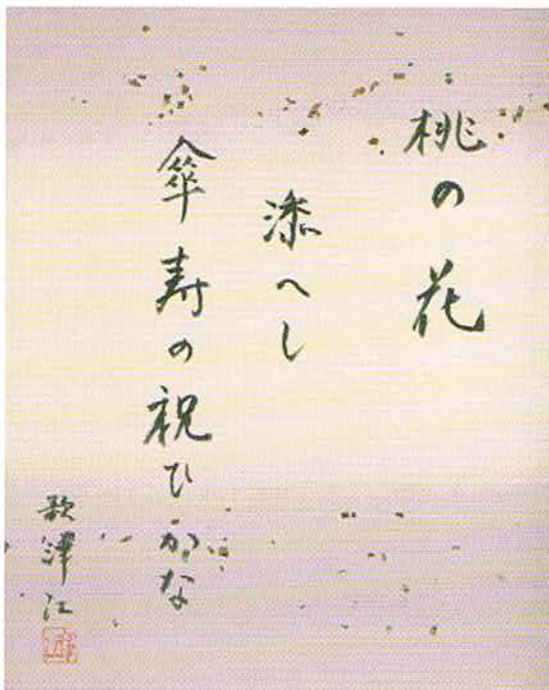 桃の花
添へし
傘寿の祝ひかな
歌津江